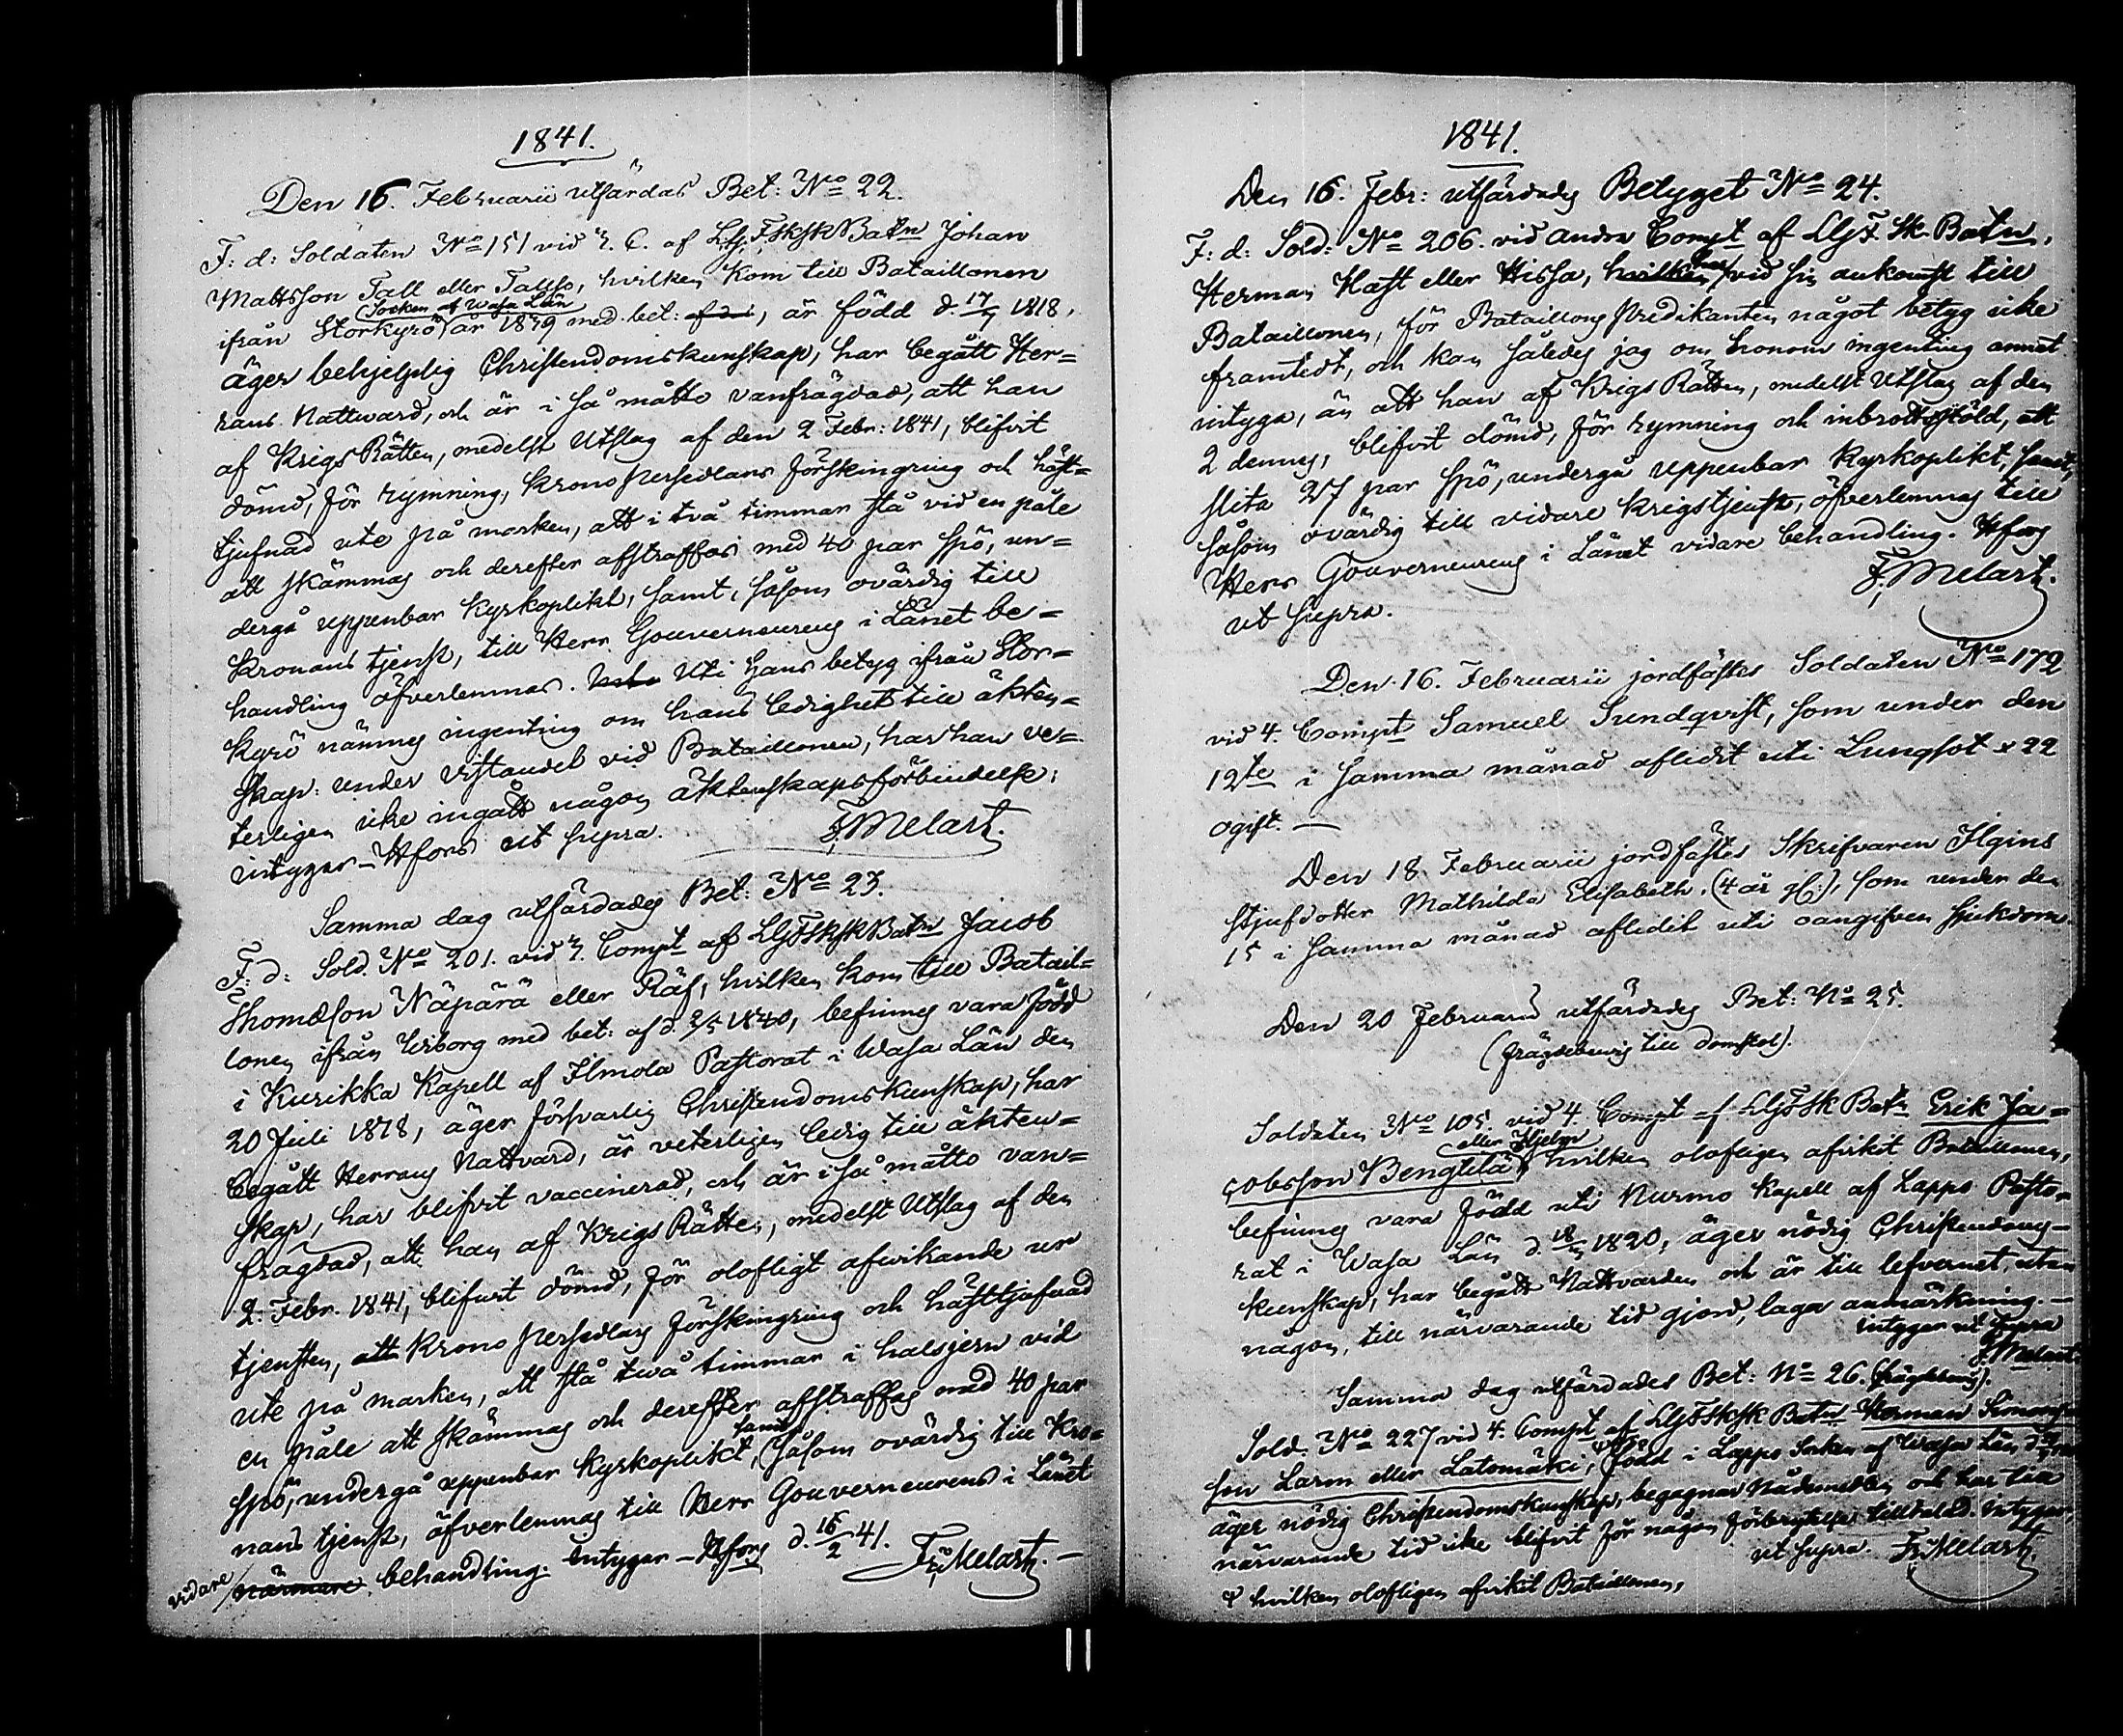 1841.
Den 16. Februarii utfärdas Bet: No 22.
F: d: Soldaten No 151 vid 3. C. af LGFSkskBatn Johan
Mattsson Tall eller Tallso, hvilken kom till Bataillonen
Socken af Wasa Län
ifrån Storkyrö år 1839 med bet: är född d. 17/7 1818,
äger behjelplig Christendomskunskap, har begått Her=
rans Nattward, och är i så måtto vanfrägdad, att han
af KrigsRätten, medelst Utslag af den 2 Febr: 1841, blifvit
dömd, för rymning, Krono Persedlars förskingring och häst=
tjufnad ute på marken, att i två timmar stå vid en påle
att skämmas och derefter afstraffas med 40 par spö, un=
dergå uppenbar Kyrkoplikt, samt, såsom ovärdig till
Kronans tjenst, till Herr Gouverneurens i Länet be=
handling öfverlemnas. Uti hans betyg ifrån Stor=
kyrö nämnes ingenting om hans ledighet till äkten=
skap: under vistandet vid Bataillonen, har han ve=
terligen icke ingått någon äktenskapsförbindelse;
intygar – Hfors ut supra. F. Melart.
Samma dag utfärdades Bet: No 23.
F: d: Sold. No 201. vid 3. Compt af LGFSkskBatn Jacob
Thomasson Näpärä eller Räf, hvilken kom till Batail=
lonen ifrån Wiborg med bet: af d. 2/5 1840, befinnes vara född
i Kurikka Kapell af Ilmola Pastorat i Wasa Län den
20 Juli 1818, äger försvarlig Christendomskunskap, har
begått Herrans Nattvard, är veterligen ledig till äkten=
skap, har blifvit vaccinerad, och är i så måtto van=
frägdad, att han af KrigsRätten, medelst Utslag af den
2. Febr. 1841, blifvit dömd, för olofligt afvikande ur
tjensten, att Krono Persedlars förskingring och hästtjufnad
ute på marken, att stå två timmar i halsjern vid
en påle att skämmas och derefter afstraffas med 40 par
samt
spö, undergå uppenbar Kyrkoplikt, såsom ovärdig till Kro=
nans tjenst, öfverlemnas till Herr Gouverneurens i Länet
vidare närmare behandling. Intygar – Hfors d. 16/2 41. Fr. Melart. –
1841.
Den 16. Febr: utfärdades Betyget No 24.
F: d: Sold: No 206. vid andra Compt af LGF. Sk. Batn,
Herman Hast eller Hissa, hvilken vid sin ankomst till
Bataillonen, för Bataillons Predikanten något betyg icke
framtedt, och kan således jag om honom ingenting annat
intyga, än att han af KrigsRätten, medelst Utslag af den
2 dennes, blifvit dömd, för rymning och inbrottsstöld, att
slita 27 par spö, undergå uppenbar Kyrkoplikt, samt,
såsom ovärdig till vidare krigstjenst, öfverlemnas till
Herr Gouverneurens i Länet vidare behandling. Hfors
ut supra. F. Melart.
Den 16. Februarii jordfästes Soldaten No 172
vid 4. Compt Samuel Sundqvist, som under den
12te i samma månad aflidit uti Lungsot 22
ogift. —
Den 18. Februarii jordfästes Skrifvaren Ilgins
stjufdotter Mathilda Elisabeth. (4 år gl:), som under den
15 i samma månad aflidit uti oangifven sjukdom.
Den 20 Februarii utfärdades Bet: No 25.
(frägdebevis till domstol).
Soldaten No 105. vid 4. Compt af LGFSk Batn Erik Ja=
eller Hjelm
cobsson Bengtilä, hvilken olofligen afvikit Bataillonen,
befinnes vara född uti Nurmo Kapell af Lappo Pasto-
rat i Wasa Län d. 1820, äger nödig Christendoms-
kunskap, har begått Nattvarden och är till lefvernet, utan
någon, till närvarande tid gjord, laga anmärkning. –
intygar ut supra
F. Melart.
Samma dag utfärdades Bet: No 26. (frägdebevis).
Sold. No 227 vid 4. Compt af LGFSkskBatn Herman Simons-
son Larm eller Latomäki, född i Lappo Socken af Wasa Län
äger nödig Christendomskunskap, begagnar Nådemedlen och har till
närvarande tid icke blifvit för någon förbrytelse tilltalad. intygar
ut supra. Fr. Melart.
hvilken olofligen afvikit Bataillonen,